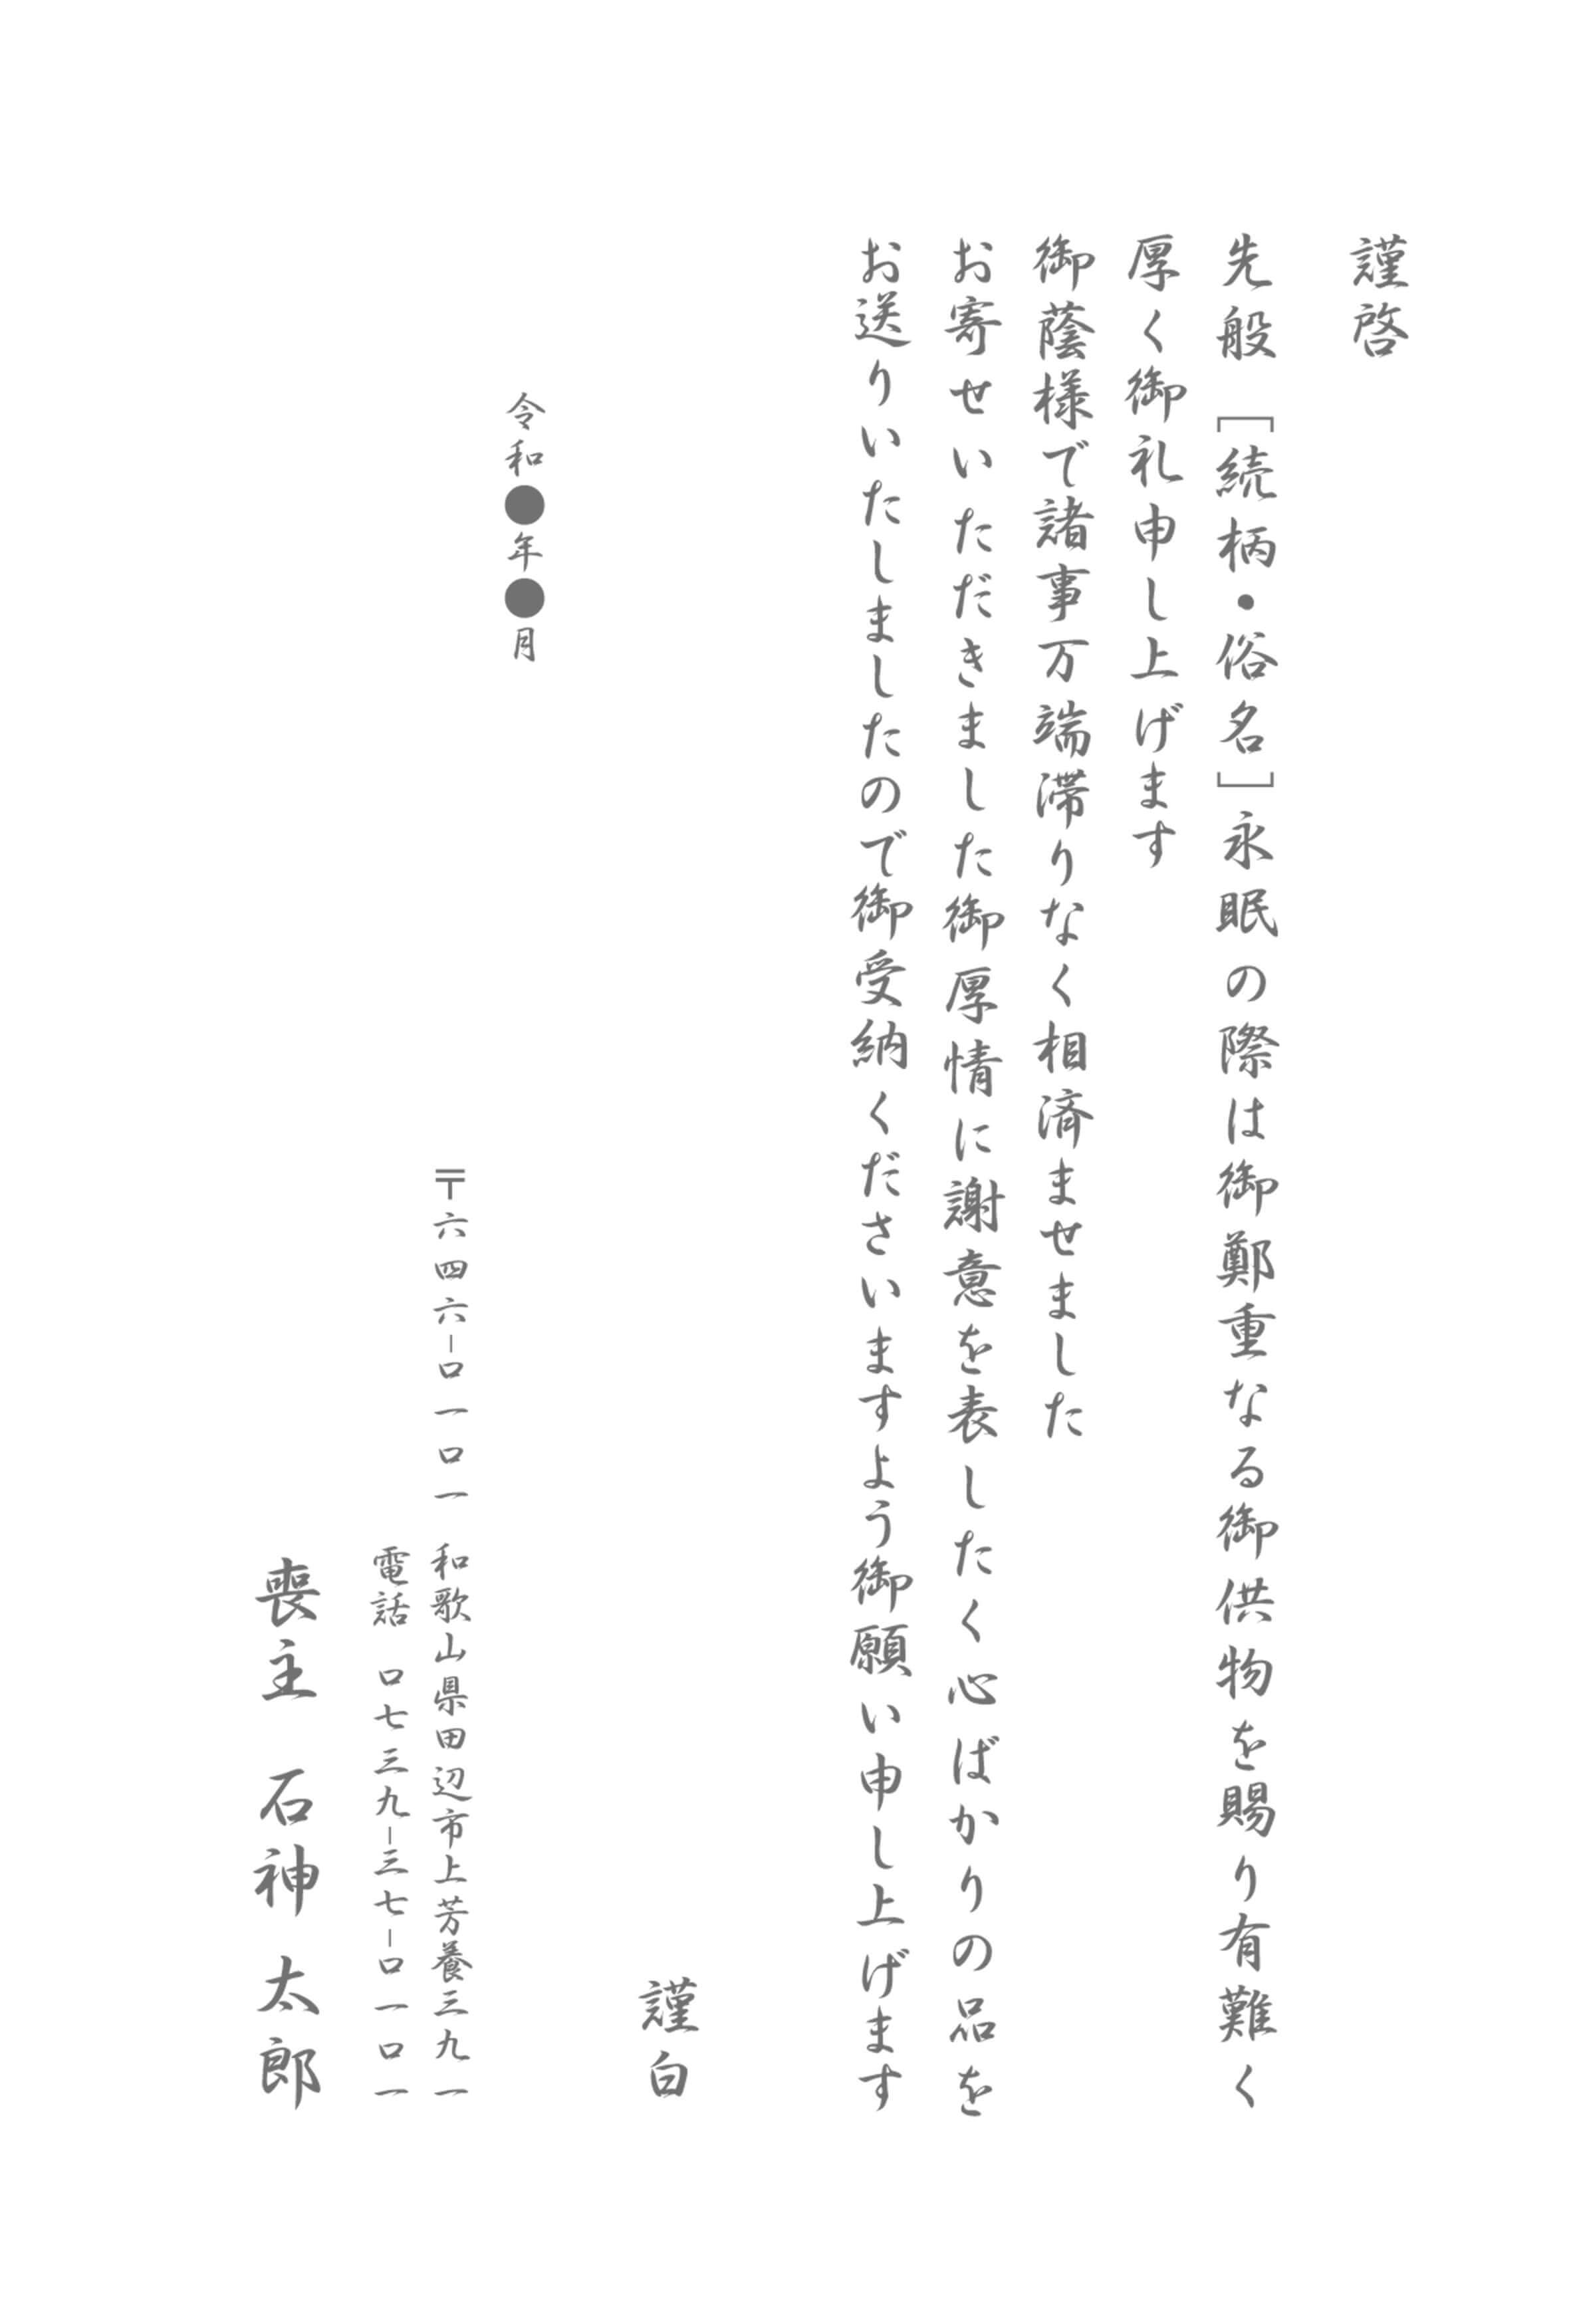 謹啓
先般［続柄・俗名］永眠の際は御鄭重なる御供物を賜り有難く
厚く御礼申し上げます
御蔭様で諸事万端滞りなく相済ませました
お寄せいただきました御厚情に謝意を表したく心ばかりの品を
お送りいたしましたので御受納くださいますよう御願い申し上げます
謹白
令和●年●月
〒六四六-〇一〇一 和歌山県田辺市上芳養三九一
電話 〇七三九-三七-〇一〇一
喪主 石神 太郎